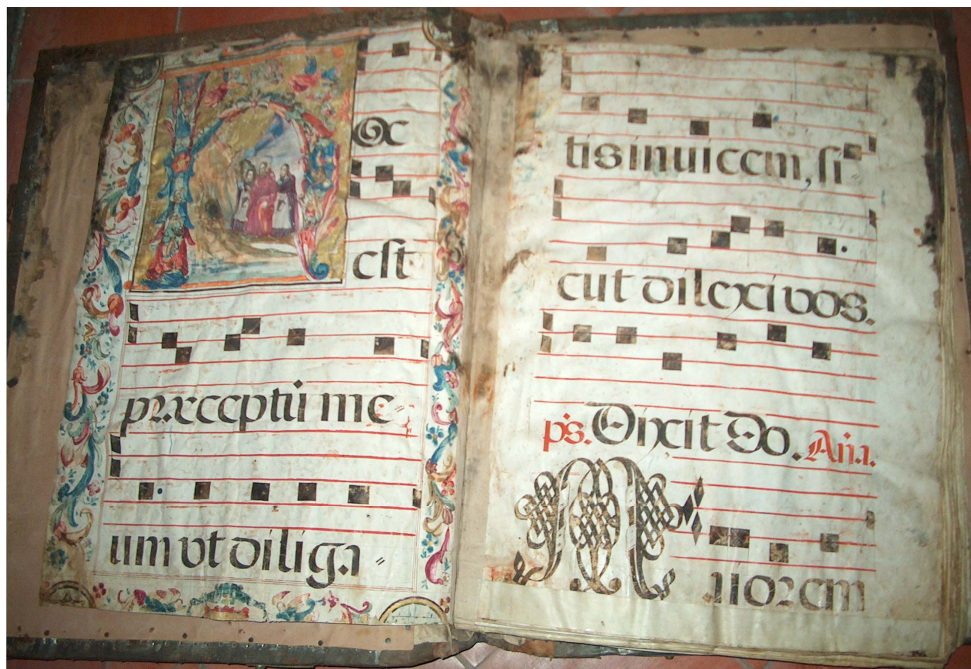 Hoc
est
præceptū me〃
um vt diliga〃
tis inuicem, si
cut dilexi vos.
ps. Dixit Do. Añ.a.
Maiorem